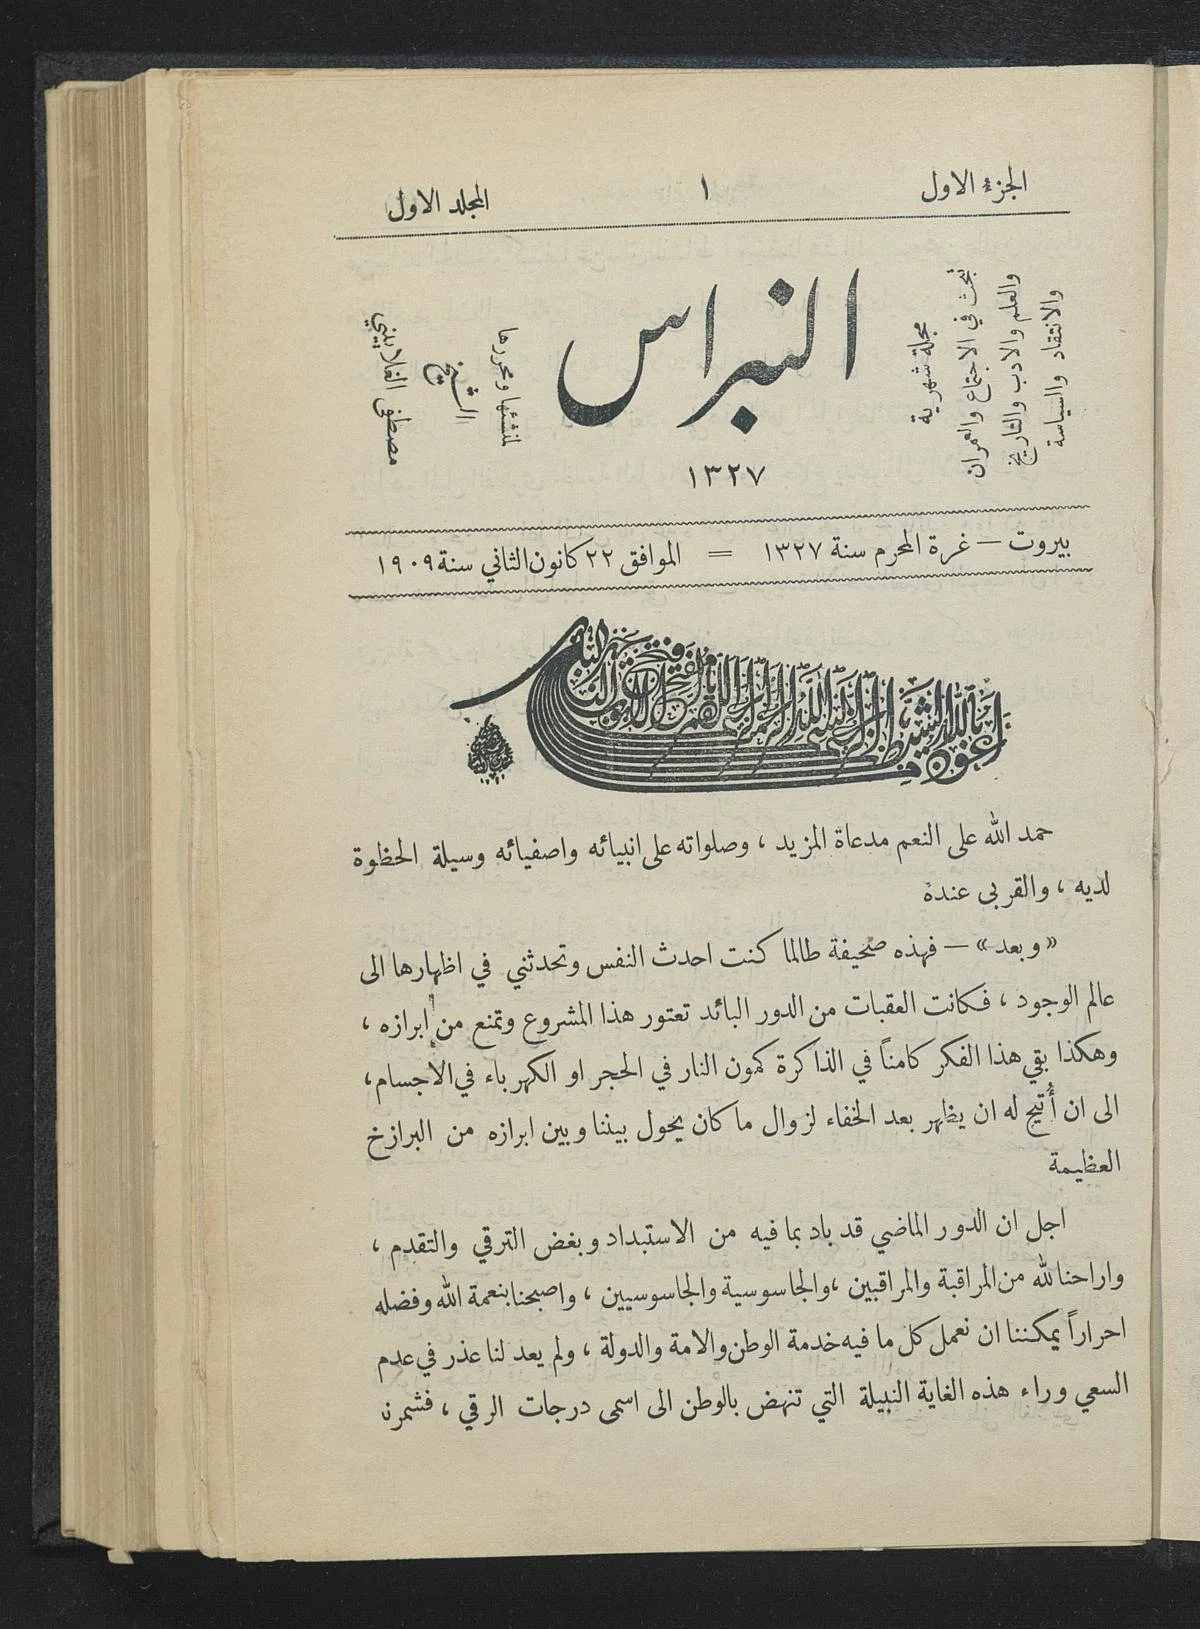 الجزء الاول
١
المجلد الاول
مجلة شهرية
تبحث في الاجتماع والعمران
والعلم والادب والتاريخ
والانتقاد والسياسة
النبراس
١٣٢٧
لمنشئها ومحررها
الشيخ
مصطفى الغلاييني
بيروت — غرة المحرم سنة ١٣٢٧ = الموافق ٢٢ كانون الثاني سنة ١٩٠٩
اعوذ بالله من الشيطان الرجيم بسم الله الرحمن الرحيم
حمد الله على النعم مدعاة المزيد ، وصلواته على انبيائه واصفيائه وسيلة الحظوة
لديه ، والقربى عنده
«وبعد» — فهذه صحيفة طالما كنت احدث النفس وتحدثني في اظهارها الى
عالم الوجود ، فكانت العقبات من الدور البائد تعتور هذا المشروع وتمنع من ابرازه ،
وهكذا بقي هذا الفكر كامناً في الذاكرة كمون النار في الحجر او الكهرباء في الأجسام ،
الى ان أُتيح له ان يظهر بعد الخفاء لزوال ما كان يحول بيننا وبين ابرازه من البرازخ
العظيمة
اجل ان الدور الماضي قد باد بما فيه من الاستبداد وبغض الترقي والتقدم ،
واراحنا لله من المراقبة والمراقبين ، والجاسوسية والجاسوسيين ، واصبحنا بنعمة الله وفضله
احراراً يمكننا ان نعمل كل ما فيه خدمة الوطن والامة والدولة ، ولم يعد لنا عذر في عدم
السعي وراء هذه الغاية النبيلة التي تنهض بالوطن الى اسمى درجات الرقي ، فشمرنا